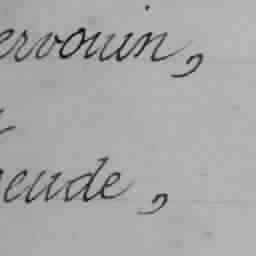 ervouin,
eude,